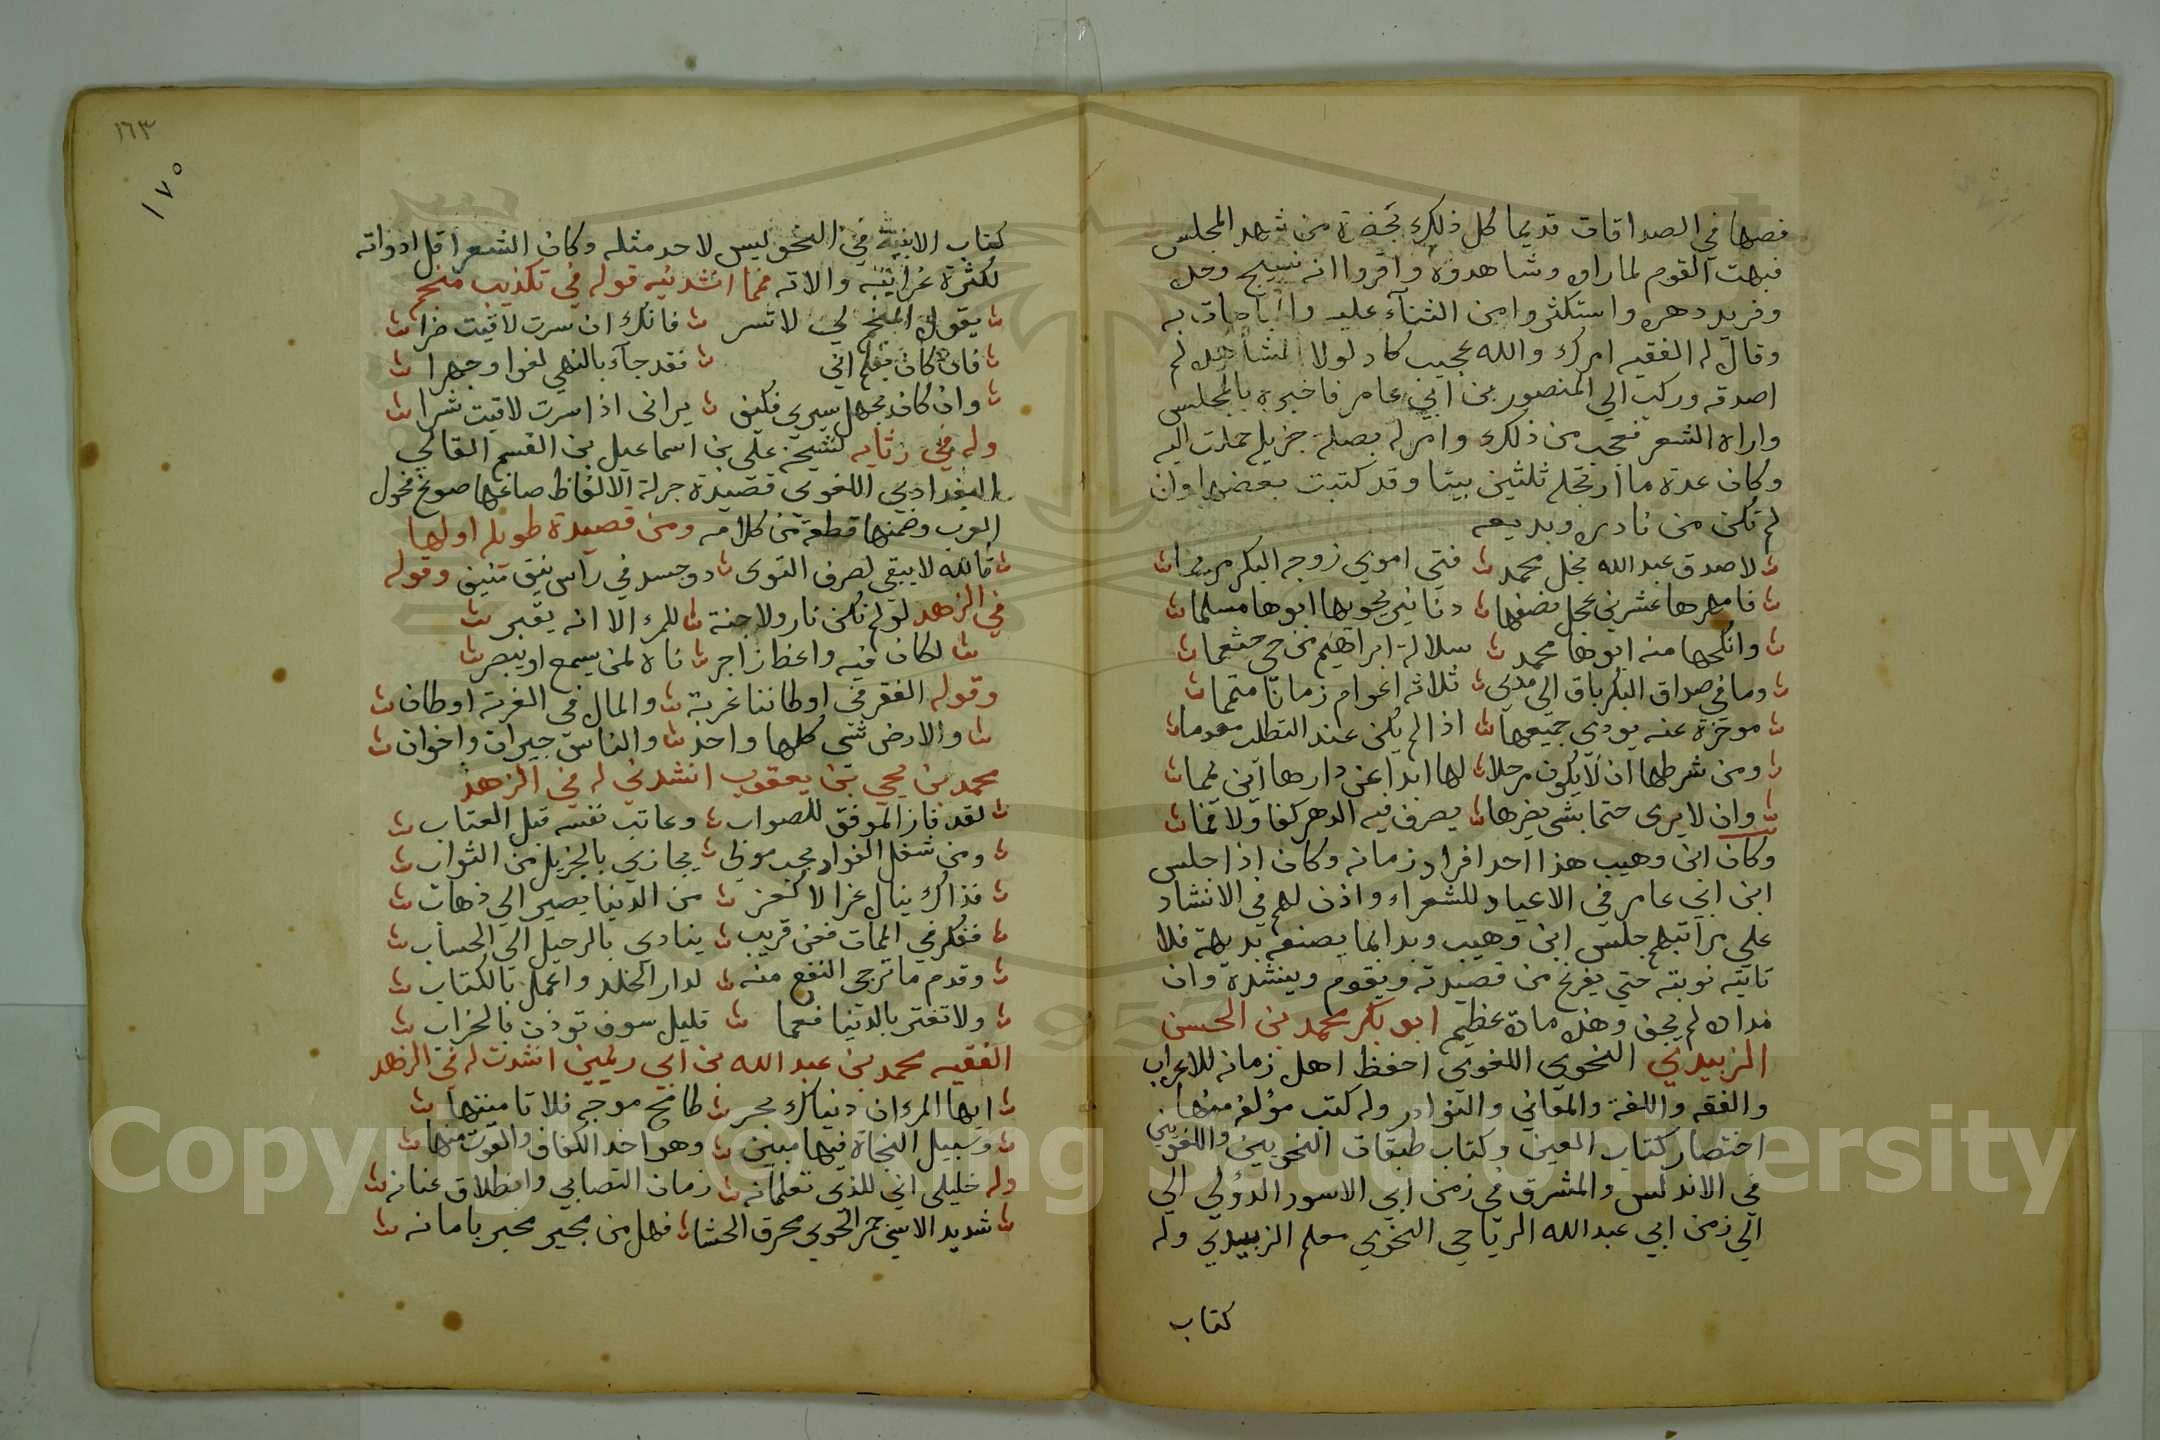 فصها في الصداقات قديما كل ذلك بحضرة من شهد المجلس
فبهت القوم لما راوه وشاهدوه واقروا انه نسيج وحده
وفريد دهره واستكثروا من الثناء عليه به
وقال له الفقيه امرك والله عجيب كاد لولا المشاهدة لم
اصدقه وركب الي المنصور بن ابي عامر فاخبره بالمجلس
واراه الشعر فعجب من ذلك وامر له بصلة جزيلة حملت اليه
وكان عدة ما ارتجله ثلثين بيتا وقد كتبت بعضها وان
لم تكن من نادره وبديعه
لاصدق عبد الله نجل محمد فتي اموي زوجه البكر مريما
فامهرها عشرين عجل نصفها دنانير يحويها ابوها مسلما
وانكحها منه ابوها محمد سلالة ابراهيم من حي خثعما
وما في صداق البكر باق الى مدى ثلاثة اعوام زمانا متمما
موخرة عنه يودي جميعها اذا لم يكن عند التطلب معدما
ومن شرطها ان لا يكون مرحلا لها ابدا عن دارها اين يمما
وان لا يرى حتما بشي يضرها يصرف فيه الدهر كفا ولا فما
وكان ابن وهيب هذا احد افراد زمانه وكان اذا جلس
ابن ابي عامر في الاعياد للشعراء واذن لهم في الانشاد
علي مراتبهم جلس ابن وهيب وبدا بما يصنعه بديهة فلا
تاتيه نوبته حتي يفرغ من قصيدته ويقوم وينشدها وان
مداده لم يجف وهذه مادة عظيمة ابو بكر محمد بن الحسن
الزبيدي النحوي اللغوي احفظ اهل زمانه للاعراب
والفقه واللغة والمعاني والنوادر وله كتب مؤلفة منها
اختصار كتاب العين وكتاب طبقات النحويين واللغويين
في الاندلس والمشرق في زمن ابي الاسود الدؤلي الي
الي زمن ابي عبد الله الرياحي النحوي معلم الزبيدي وله
كتاب
١٦٣
١٧٥
كتاب الابنية في النحو ليس لاحد مثله وكان الشعر اقل ادواته
لكثرة غرائبه والاته فمما انشدنيه قوله في تكذيب منجم
يقول المنجم لي لا تسر فانك ان سرت لاقيت ضرا
فان كان يعلم اني فقد جاء بالنهي لغوا وجهرا
وان كان يجهل سيري فكيف يراني اذا سرت لاقيت شرا
وله في رثايه لشيخه علي بن اسماعيل بن القسم القالي
البغدادي اللغوي قصيدة جزلة الالفاظ صاغها صوغ فحول
العرب وضمنها قطعة من كلامه ومن قصيدة طويلة اولها
تالله لا يبقي لصرف النوى ذو جسد في راس نيق منيف وقوله
في الزهد لو لم تكن نار ولا جنة للمرء الا انه يقبر
لكان فيه واعظ زاجر ناه لمن يسمع او يبصر
وقوله الفقر في اوطاننا غربة والمال في الغربة اوطان
والارض شي كلها واحد والناس جيران واخوان
محمد بن يحيي بن يعقوب انشدني له في الزهد
لقد فاز الموفق للصواب وعاتب نفسه قبل العتاب
ومن شغل الفواد بحب مولى يجازي بالجزيل من الثواب
فذاك ينال عزا لا كعز من الدنيا يصير الي ذهاب
ففكر في الممات فعن قريب ينادي بالرحيل الي الحساب
وقدم ما ترجي النفع منه لدار الخلد واعمل بالكتاب
ولا تغتر بالدنيا فعما قليل سوف توذن بالخراب
الفقيه محمد بن عبد الله بن ابي زمنين انشدت له في الزهد
ايها المرء ان دنياك بحر طامح موجه فلا تامننها
وسبيل النجاة فيها مبين وهو اخذ الكفاف والقوت منها
وله خليلي اني للذي تعلمانه زمان التصابي وانطلاق عنانه
شديد الاسي حر الجوى محرق الحشا فهل من مجير مخبر بامانه
Copyright © King Saud University